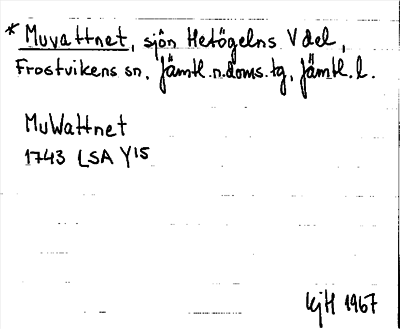 * Muvattnet, sjön Hetögelns V del,
Frostvikens sn, Jämtl.n.doms.tg, Jämtl.l.
MuWattnet
1743 LSA Y15
KjH 1967